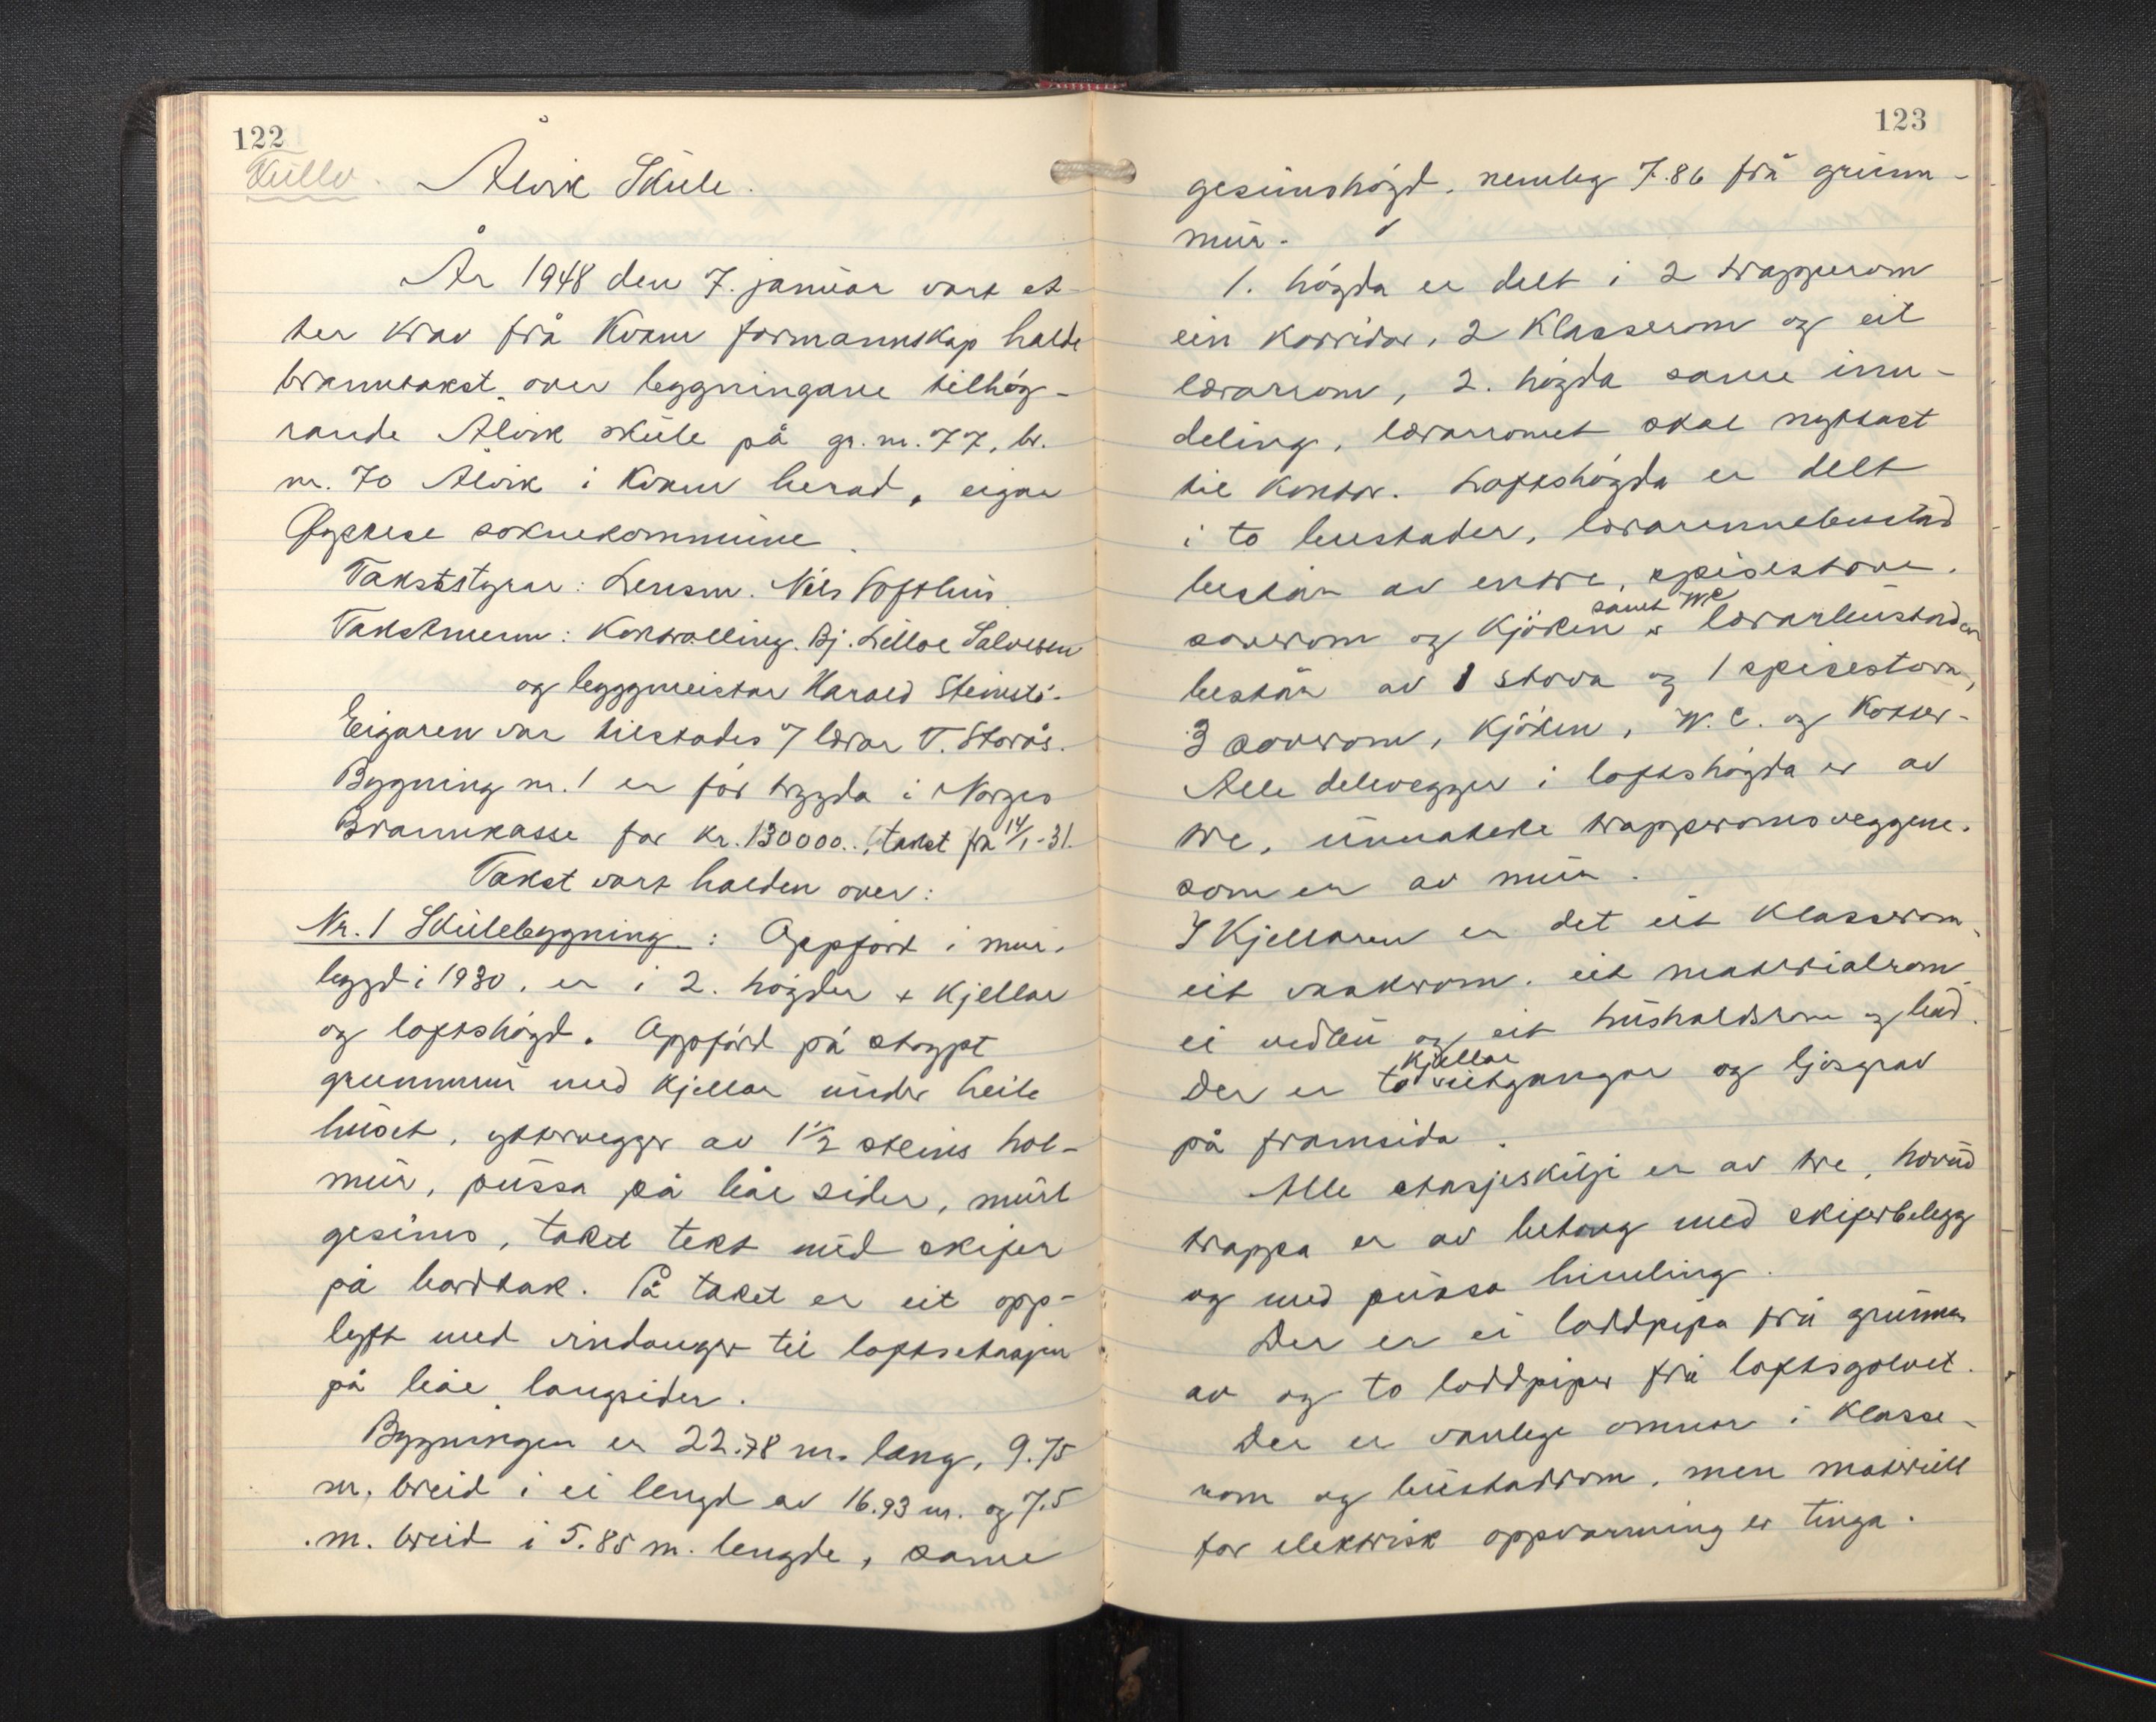 122
Ålvik Skule.
År 1948 den 7. januar vart et-
ter krav frå Kvam formannskap halde
branntakst over byggningane tilhøy-
rande Ålvik skule på gr. nr. 77, br.
nr. 70 Ålvik i Kvam herad, eigar
Øystese soknekommune.
Takststyrar: Lensm. Nils Tofthus.
Takstmenn: Kontrolling. Bj. Lilloe Salvesen
og byggmeistar Harald Steinstø.
Eigaren var tilstades v/ lærar T. Storås.
Bygning nr. 1 er før trygda i Norges
Brannkasse for kr. 130000.., takst frå 14/1-31.
Takst vart halden over:
Nr. 1 Skulebyggning: Oppført i mur,
byggd i 1930, er i 2. høgder + kjellar
og loftshøgd. Oppførd på støypt
grunnmur med kjellar under heile
huset, yttervegger av 1½ steins hol-
mur, pussa på båe sider, murt
gesims, taket tekt med skifer
på bordtak. På taket er eit opp-
lyft med vindauger til loftsetasjen
på båe langsider.
Bygningen er 22.78 m. lang, 9.75
m. breid i ei lengd av 16.93 m. og 7.5
m. breid i 5.85 m. lengde, same
123
gesimshøgd, nemleg 7.86 frå grunn-
mur.
1. høgda er delt i 2 trapperom
ein korridor, 2 klasserom og eit
lærarrom, 2. høgda same inn-
deling, lærarromet skal nyttast
til kontor. Loftshøgda er delt
i to bustader, lærarinnebustad
består av entre, spisestove.
soverom og kjøken samt WC, lærarbustaden
består av 1 stova og 1 spisestova,
3 soverom, kjøken, W.C. og kott er-
Alle delevegger i loftshøgda er av
tre, unnateke trapperomsveggene.
som er av mur.
I kjellaren er det eit klasserom,
eit vaskerom, eit materialrom
ei vedbu og eit husholdsrom og bad.
Der er to kjellar utgangar og ljosgrav
på framsida.
Alle etasjeskilje er av tre, hovud
trappa er av betong med skiferbelegg
og med pussa himling.
Der er ei loddpipa frå grunnen
av og to loddpiper frå loftsgolvet.
Der er vanlege omnar i klasse-
rom og bustadrom, men materiell
for elektrisk oppvarming er tinga.